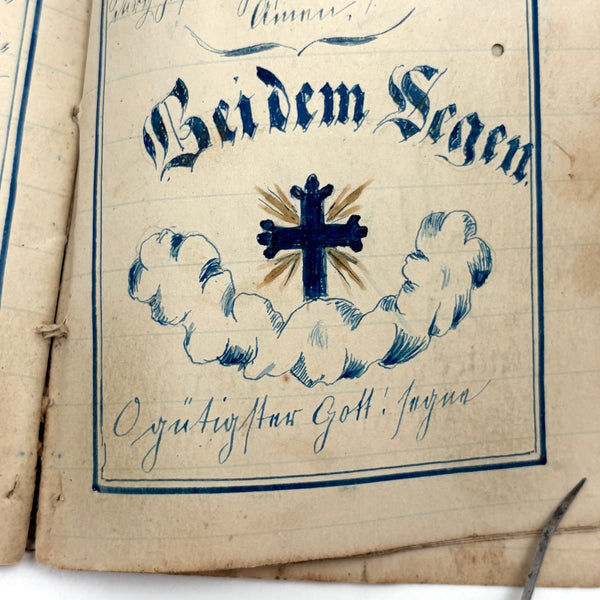 Amen.
Bei dem Segen.
O gütigster Gott! segne